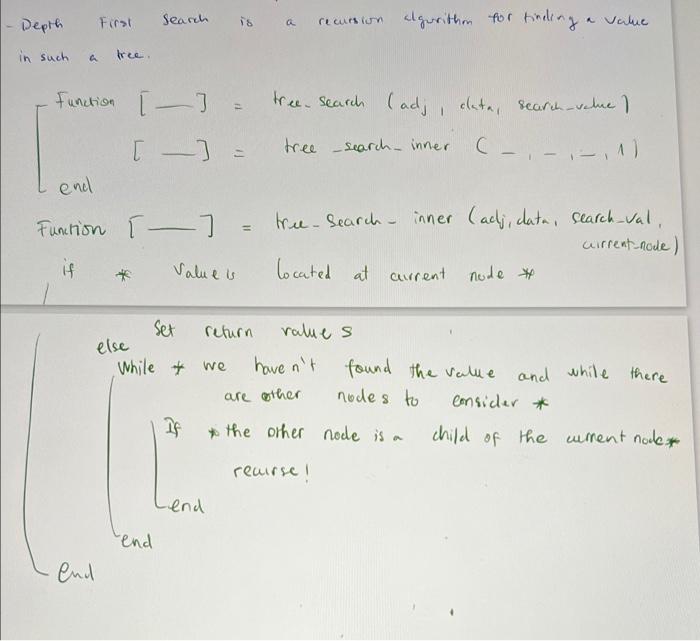 - Depth First Search is a recursion algorithm for finding a value
in such a tree.
Function [ — ] = tree_search (adj, data, search_value)
[ — ] = tree_search_inner ( -, -, -, 1)
end
Function [ — ] = tree_search_inner (adj, data, search_val,
current_node)
if * value is located at current node *
Set return values
else
while * we haven't found the value and while there
are other nodes to consider *
If * the other node is a child of the current node *
recurse!
end
end
end